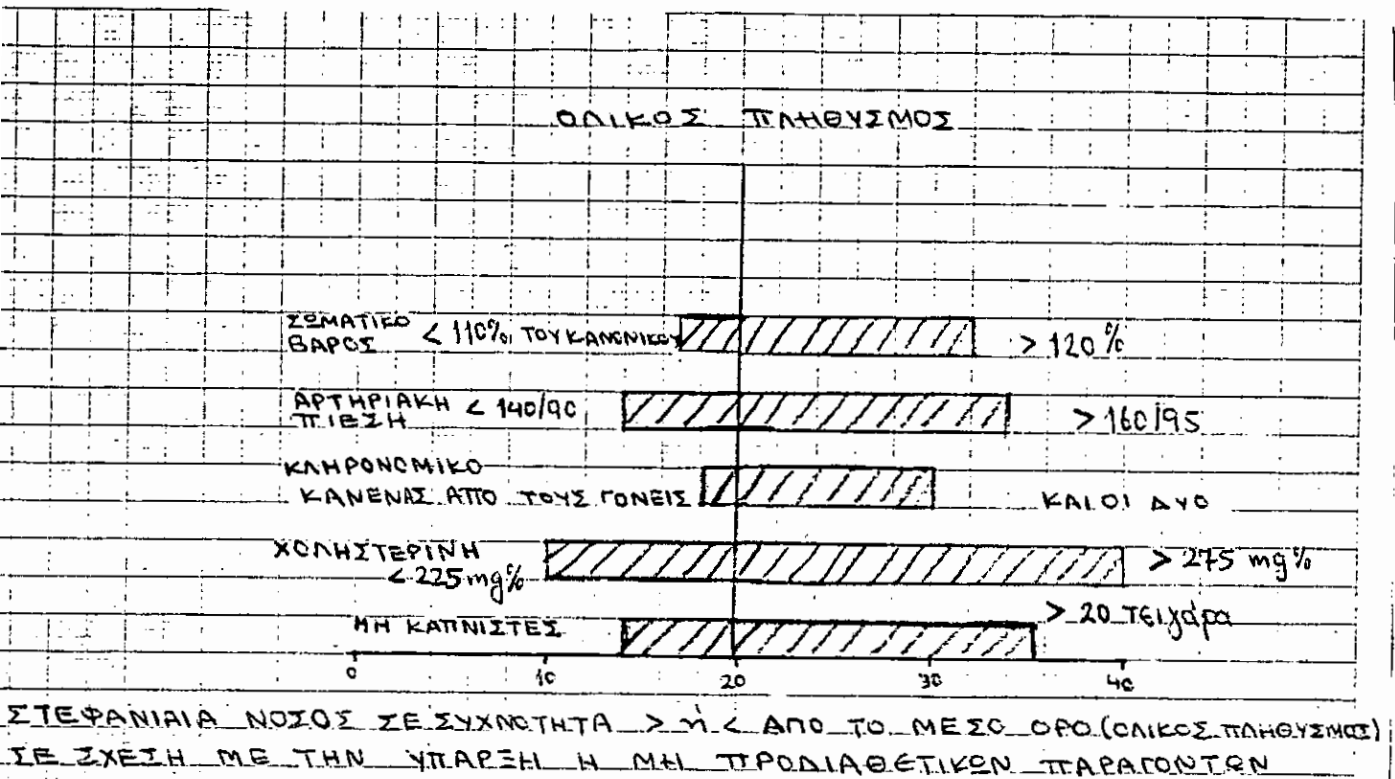 ΟΛΙΚΟΣ ΠΛΗΘΥΣΜΟΣ
ΣΩΜΑΤΙΚΟ ΒΑΡΟΣ < 110% ΤΟΥ ΚΑΝΟΝΙΚΟΥ > 120%
ΑΡΤΗΡΙΑΚΗ ΠΙΕΣΗ < 140/90 > 160/95
ΚΛΗΡΟΝΟΜΙΚΟ
ΚΑΝΕΝΑΣ ΑΠΟ ΤΟΥΣ ΓΟΝΕΙΣ ΚΑΙ ΟΙ ΔΥΟ
ΧΟΛΗΣΤΕΡΙΝΗ
< 225 mg% > 275 mg%
ΜΗ ΚΑΠΝΙΣΤΕΣ > 20 τσιγάρα
0 10 20 30 40
ΣΤΕΦΑΝΙΑΙΑ ΝΟΣΟΣ ΣΕ ΣΥΧΝΟΤΗΤΑ > ή < ΑΠΟ ΤΟ ΜΕΣΟ ΟΡΟ (ΟΛΙΚΟΣ ΠΛΗΘΥΣΜΟΣ)
ΣΕ ΣΧΕΣΗ ΜΕ ΤΗΝ ΥΠΑΡΞΗ Η ΜΗ ΠΡΟΔΙΑΘΕΤΙΚΩΝ ΠΑΡΑΓΟΝΤΩΝ